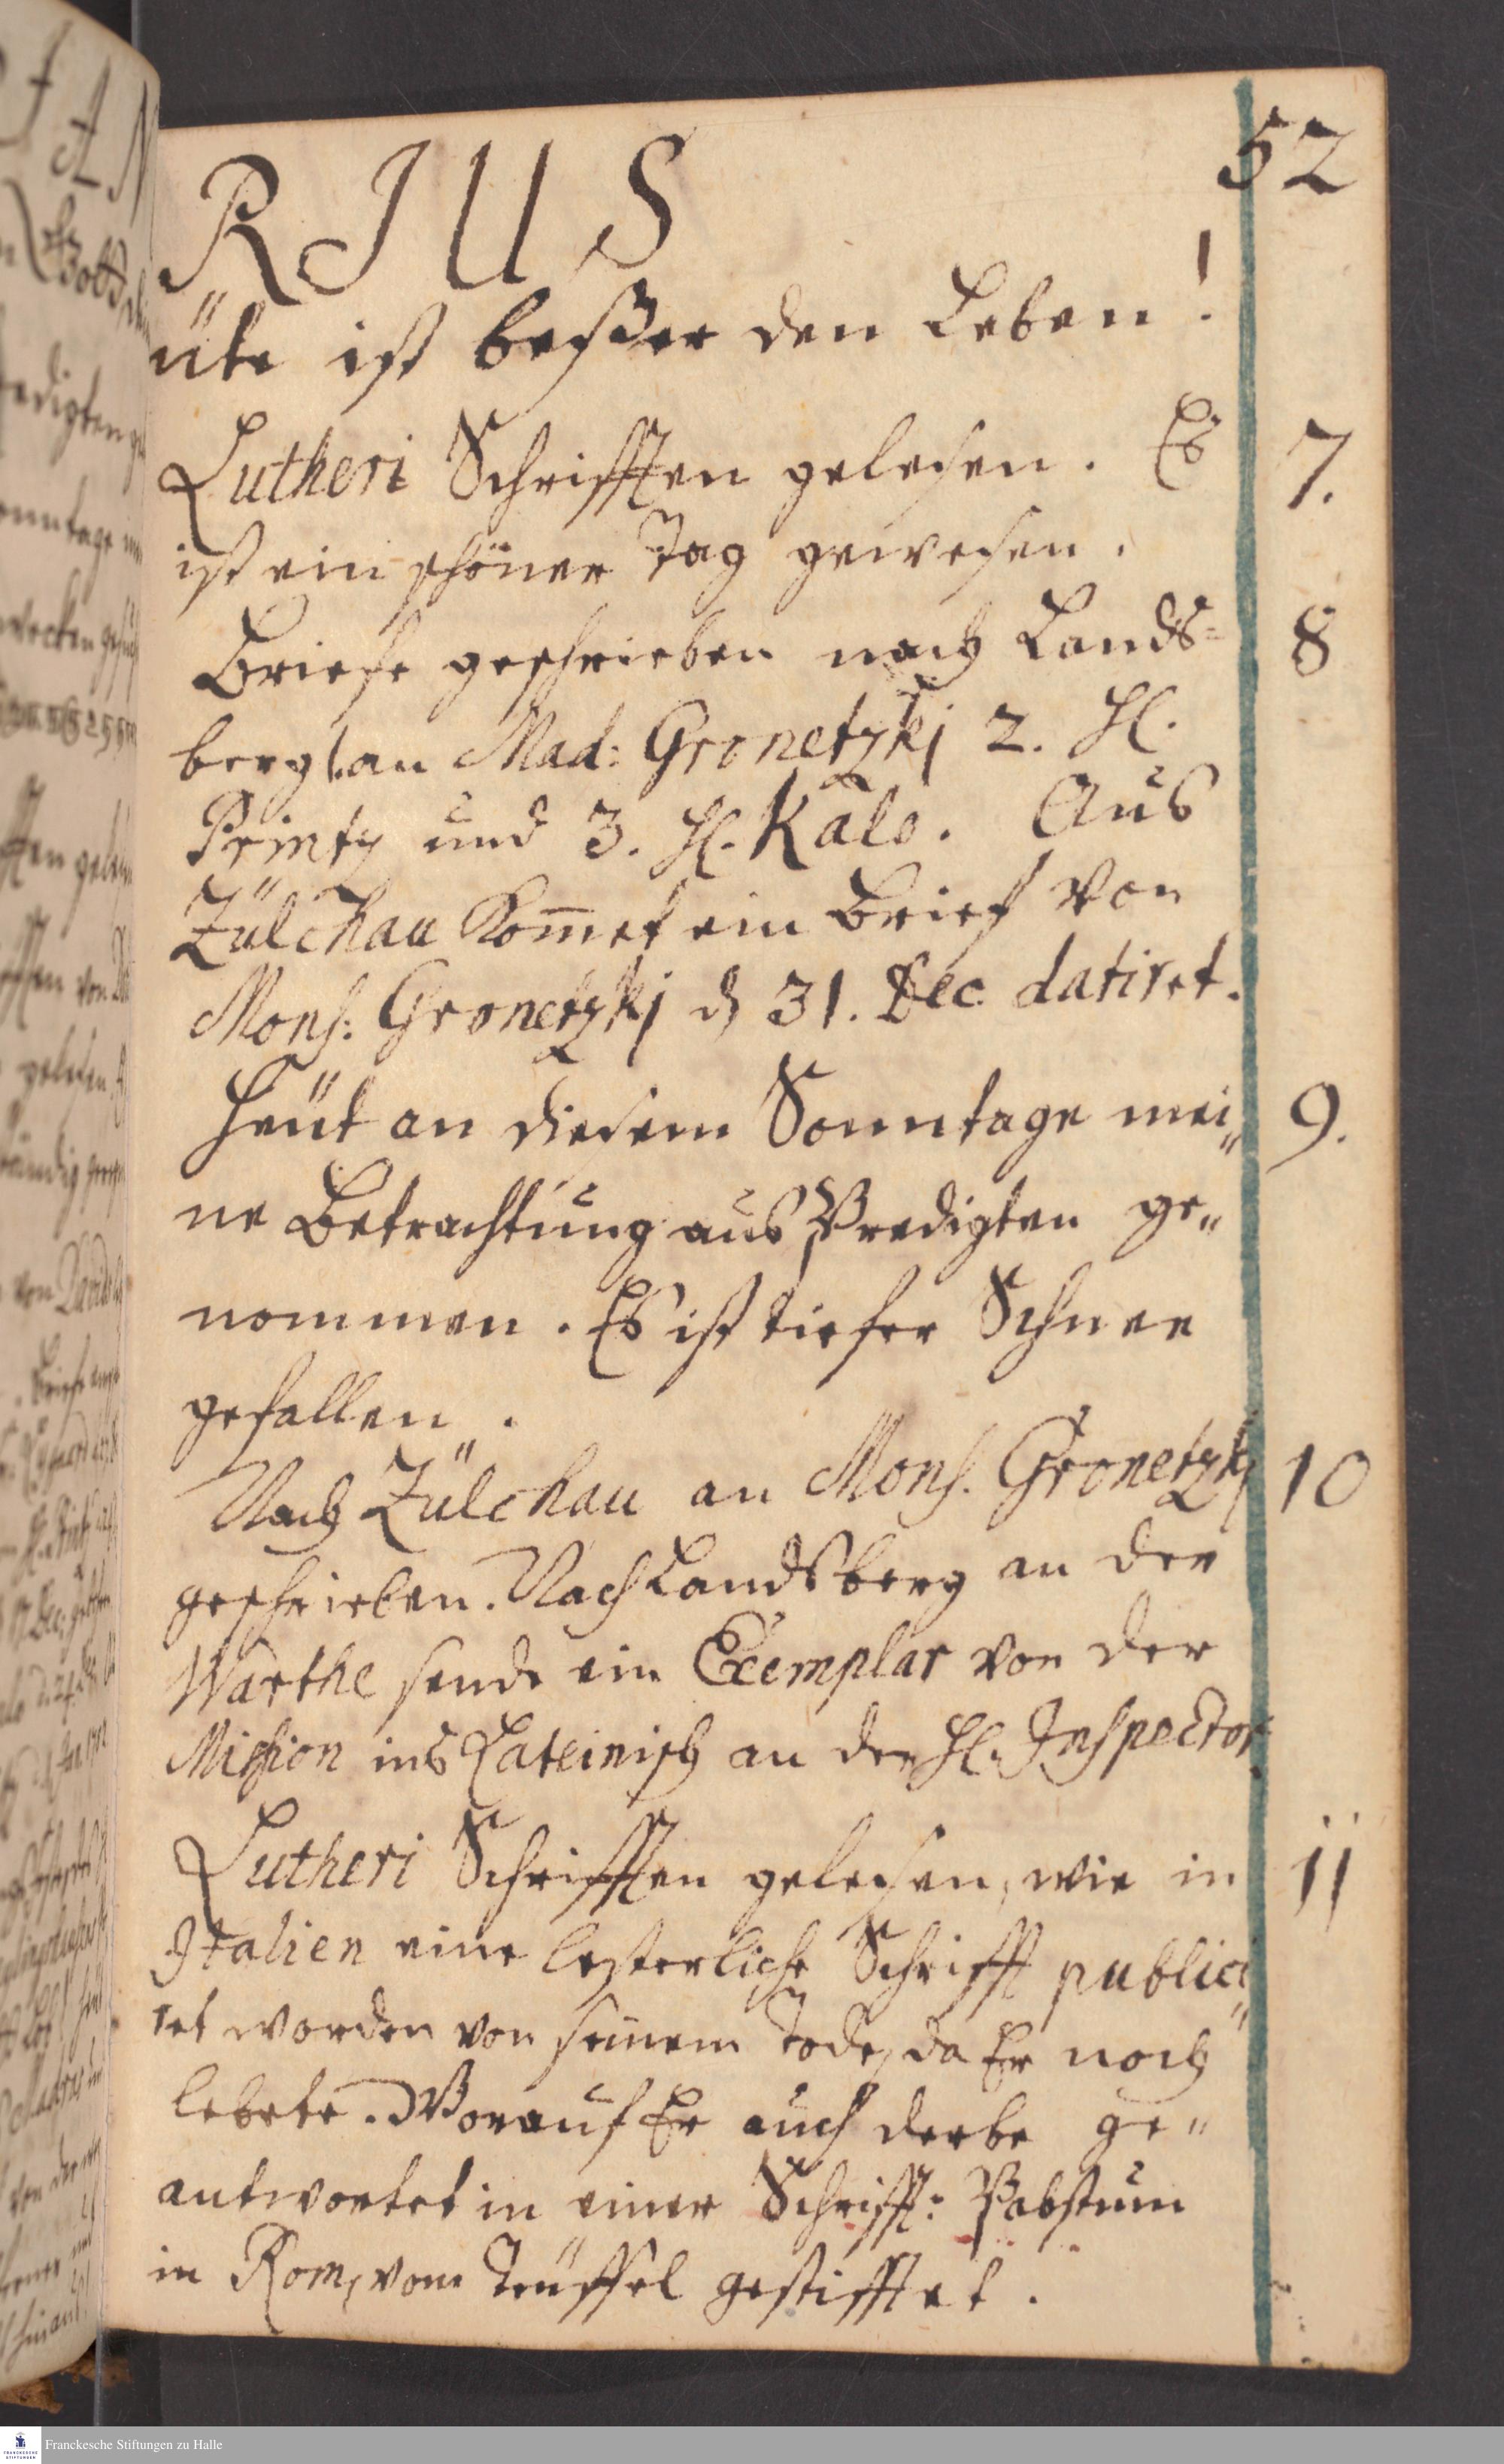 52
RIUS
üte ist beßer den Leben!
Lutheri Schrifften gelesen. Es 7.
ist ein schöner Tag gewesen.
Briefe geschrieben nach Lands= 8
berg 1. an Mad: Gronetzkj 2. H.
Printz und 3. H. Kalo. Aus
Zülchau kom̄et ein Brief von
Mons: Gronetzkj d 31. Dec datiret.
Heüt an diesem Sonntage mei„ 9.
ne Betrachtung aus Predigten ge„
nommen. Es ist tiefer Schnee
gefallen.
Nach Zülchau an Mons. Gronetzkj 10
geschrieben. Nach Landsberg an der
Warthe sende ein Exemplar von der
Mission ins Lateinisch an den H. Inspector.
Lutheri Schrifften gelesen, wie in 11
Italien eine lesterliche Schrifft publici„
ret worden von seinem Tode, da Er noch
lebete. Worauf Er auch derbe ge„
antwortet in einer Schrifft: Pabstum
in Rom, vom Teüffel gestifftet.
Franckesche Stiftungen zu Halle